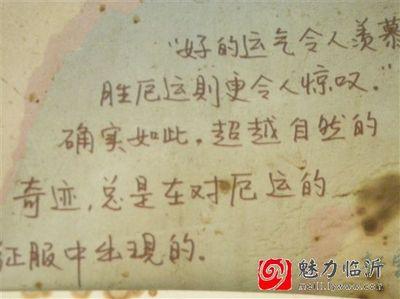 "好的运气令人羡慕
胜厄运则更令人惊叹."
确实如此.超越自然的
奇迹,总是在对厄运的
征服中出现的.
魅力临沂
meili.lywww.com